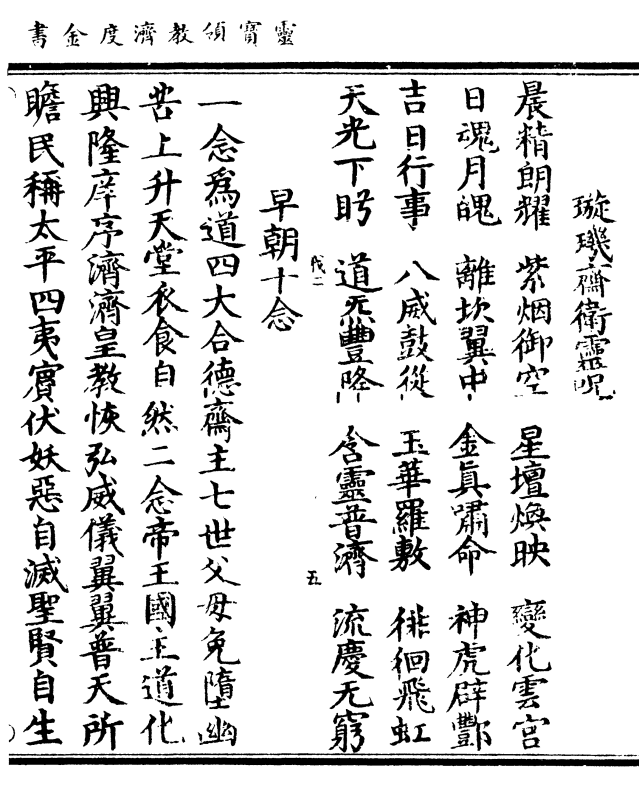 靈寳領教濟度金書
璇璣齋衛靈呪
晨精朗耀 紫烟御空 星壇煥映 變化雲宮
日魂月魄 離坎翼中 金真嘯命 神虎辟酆
吉日行事 八威鼓從 玉華羅敷 徘徊飛虹
天光下盻 道炁豐降 含靈普濟 流慶无窮
戌二 五
早朝十念
一念爲道四大合德齋主七世父母免墮幽
苦上升天堂衣食自然二念帝王國主道化
興隆庠序濟濟皇教恢弘威儀翼翼普天所
瞻民稱太平四夷賓伏妖惡自滅聖賢自生